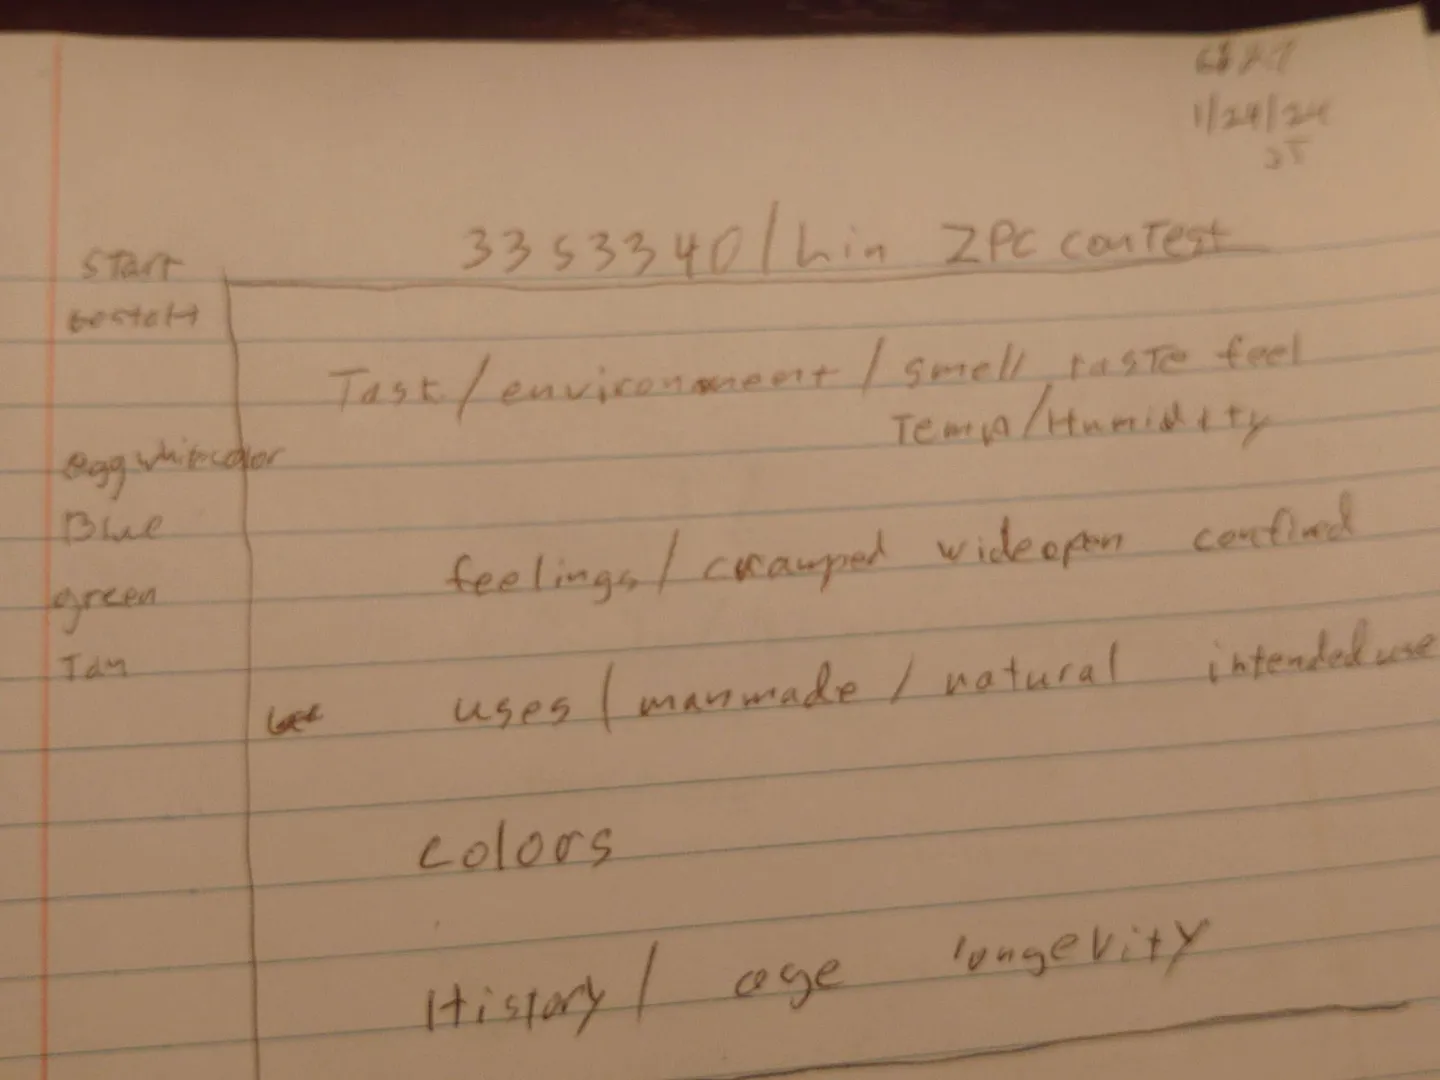 1/24/24
25
Start
3353340/hin ZPC contest
Task/environment/smell taste feel
Temp/Humidity
egg white color
Blue
feelings/cramped wideopen confined
green
Tan
uses/manmade/natural intended use
colors
History/age longevity